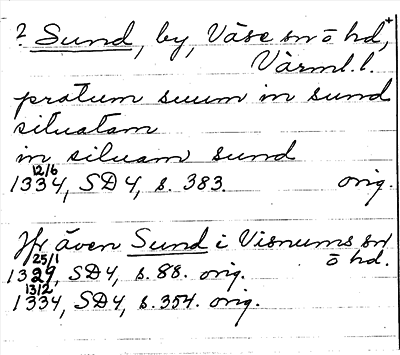 ? Sund, by, Väse sn ö hd, +
Värml. l.
pratum suum in sund
situatam
in siluam sund
12/6
1334, SD4, s. 383. orig.
Jfr även Sund i Visnums sn
ö hd.
25/1
1329, SD4, s. 88. orig.
13/2
1334, SD4, s. 354. orig.